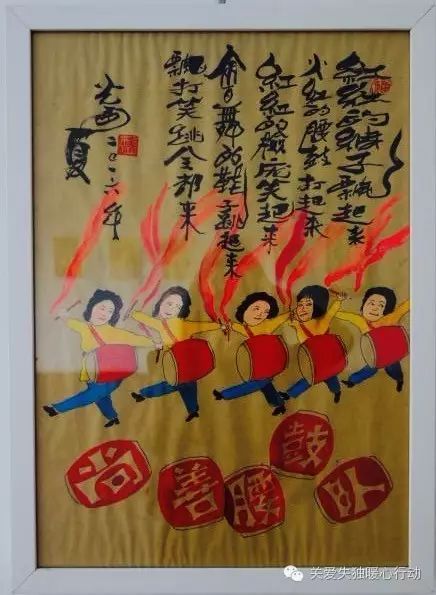 红红的绸子飘起来
火红的腰鼓打起来
红红的脸庞笑起来
会舞的鞋子跳起来
飘打笑跳全都来
二〇一六年
夏
尚善腰鼓队
关爱失独暖心行动